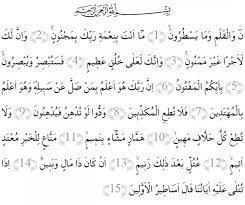 بِسْمِ اللَّهِ الرَّحْمَنِ الرَّحِيمِ
نٓ وَالْقَلَمِ وَمَا يَسْطُرُونَ ﴿1﴾ مَا أَنتَ بِنِعْمَةِ رَبِّكَ بِمَجْنُونٍ ﴿2﴾ وَإِنَّ لَكَ
لَأَجْرًا غَيْرَ مَمْنُونٍ ﴿3﴾ وَإِنَّكَ لَعَلَى خُلُقٍ عَظِيمٍ ﴿4﴾ فَسَتُبْصِرُ وَيُبْصِرُونَ
﴿5﴾ بِأَييِّكُمُ الْمَفْتُونُ ﴿6﴾ إِنَّ رَبَّكَ هُوَ أَعْلَمُ بِمَن ضَلَّ عَن سَبِيلِهِ وَهُوَ أَعْلَمُ
بِالْمُهْتَدِينَ ﴿7﴾ فَلَا تُطِعِ الْمُكَذِّبِينَ ﴿8﴾ وَدُّوا لَوْ تُدْهِنُ فَيُدْهِنُونَ ﴿9﴾ وَلَا
تُطِعْ كُلَّ حَلَّافٍ مَّهِينٍ ﴿10﴾ هَمَّازٍ مَّشَّاءٍ بِنَمِيمٍ ﴿11﴾ مَنَّاعٍ لِّلْخَيْرِ مُعْتَدٍ
أَثِيمٍ ﴿12﴾ عُتُلٍّ بَعْدَ ذَلِكَ زَنِيمٍ ﴿13﴾ أَن كَانَ ذَا مَالٍ وَبَنِينَ ﴿14﴾ إِذَا
تُتْلَى عَلَيْهِ آيَاتُنَا قَالَ أَسَاطِيرُ الْأَوَّلِينَ ﴿15﴾